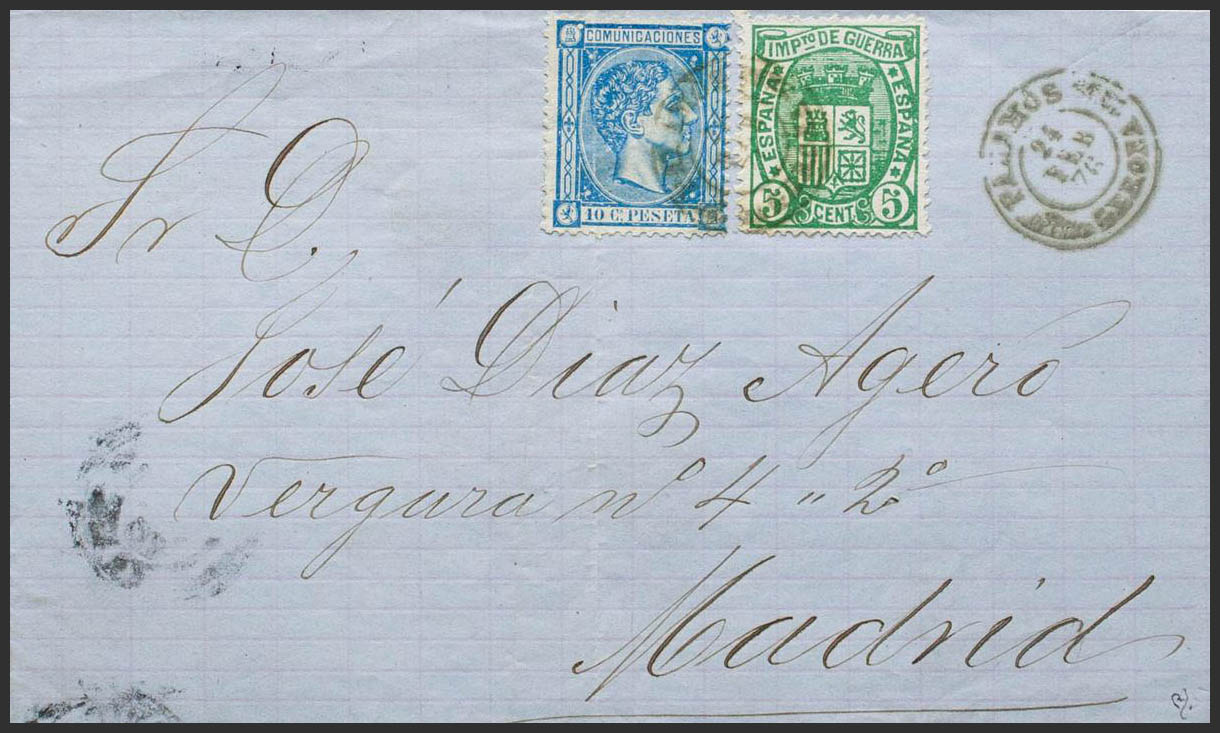 COMUNICACIONES
10 C. PESETA
IMPTO DE GUERRA
ESPAÑA
ESPAÑA
5 CENT. 5
PALAMÓS
GERONA
24
FEB
76
Sr D.
José Diaz Ageró
Vergara nº 4 " 2º
Madrid